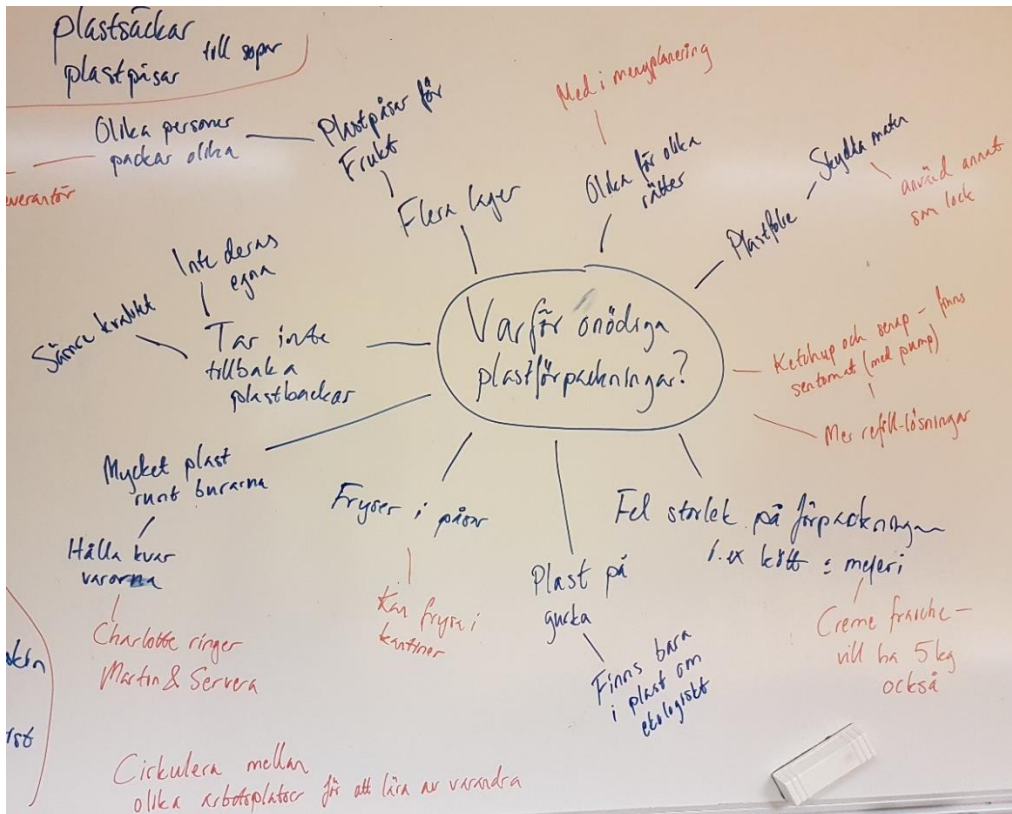 plastsäckar
plastpåsar till sopar
Olika personer
packar olika
everantör
Plastpåsar för
Frukt
Flera lager
Med i menyplanering
Olika för olika
rätter
Plastfolie
Skydda maten
använd annat
som lock
Inte deras
egna
Sämre kvalitet
Tar inte
tillbaka
plastbackar
Varför onödiga
plastförpackningar?
Ketchup och senap – finns
sentomat (med pump)
Mer refill-lösningar
Mycket plast
runt burarna
Hålla kvar
varorna
Charlotte ringer
Martin & Servera
Fryser i påsar
Kan frysa i
kantiner
Plast på
gurka
Finns bara
i plast om
ekologiskt
Fel storlek på förpackningar
t.ex kött & mejeri
Creme fraiche –
vill ha 5 kg
också
Cirkulera mellan
olika arbetsplatser för att lära av varandra